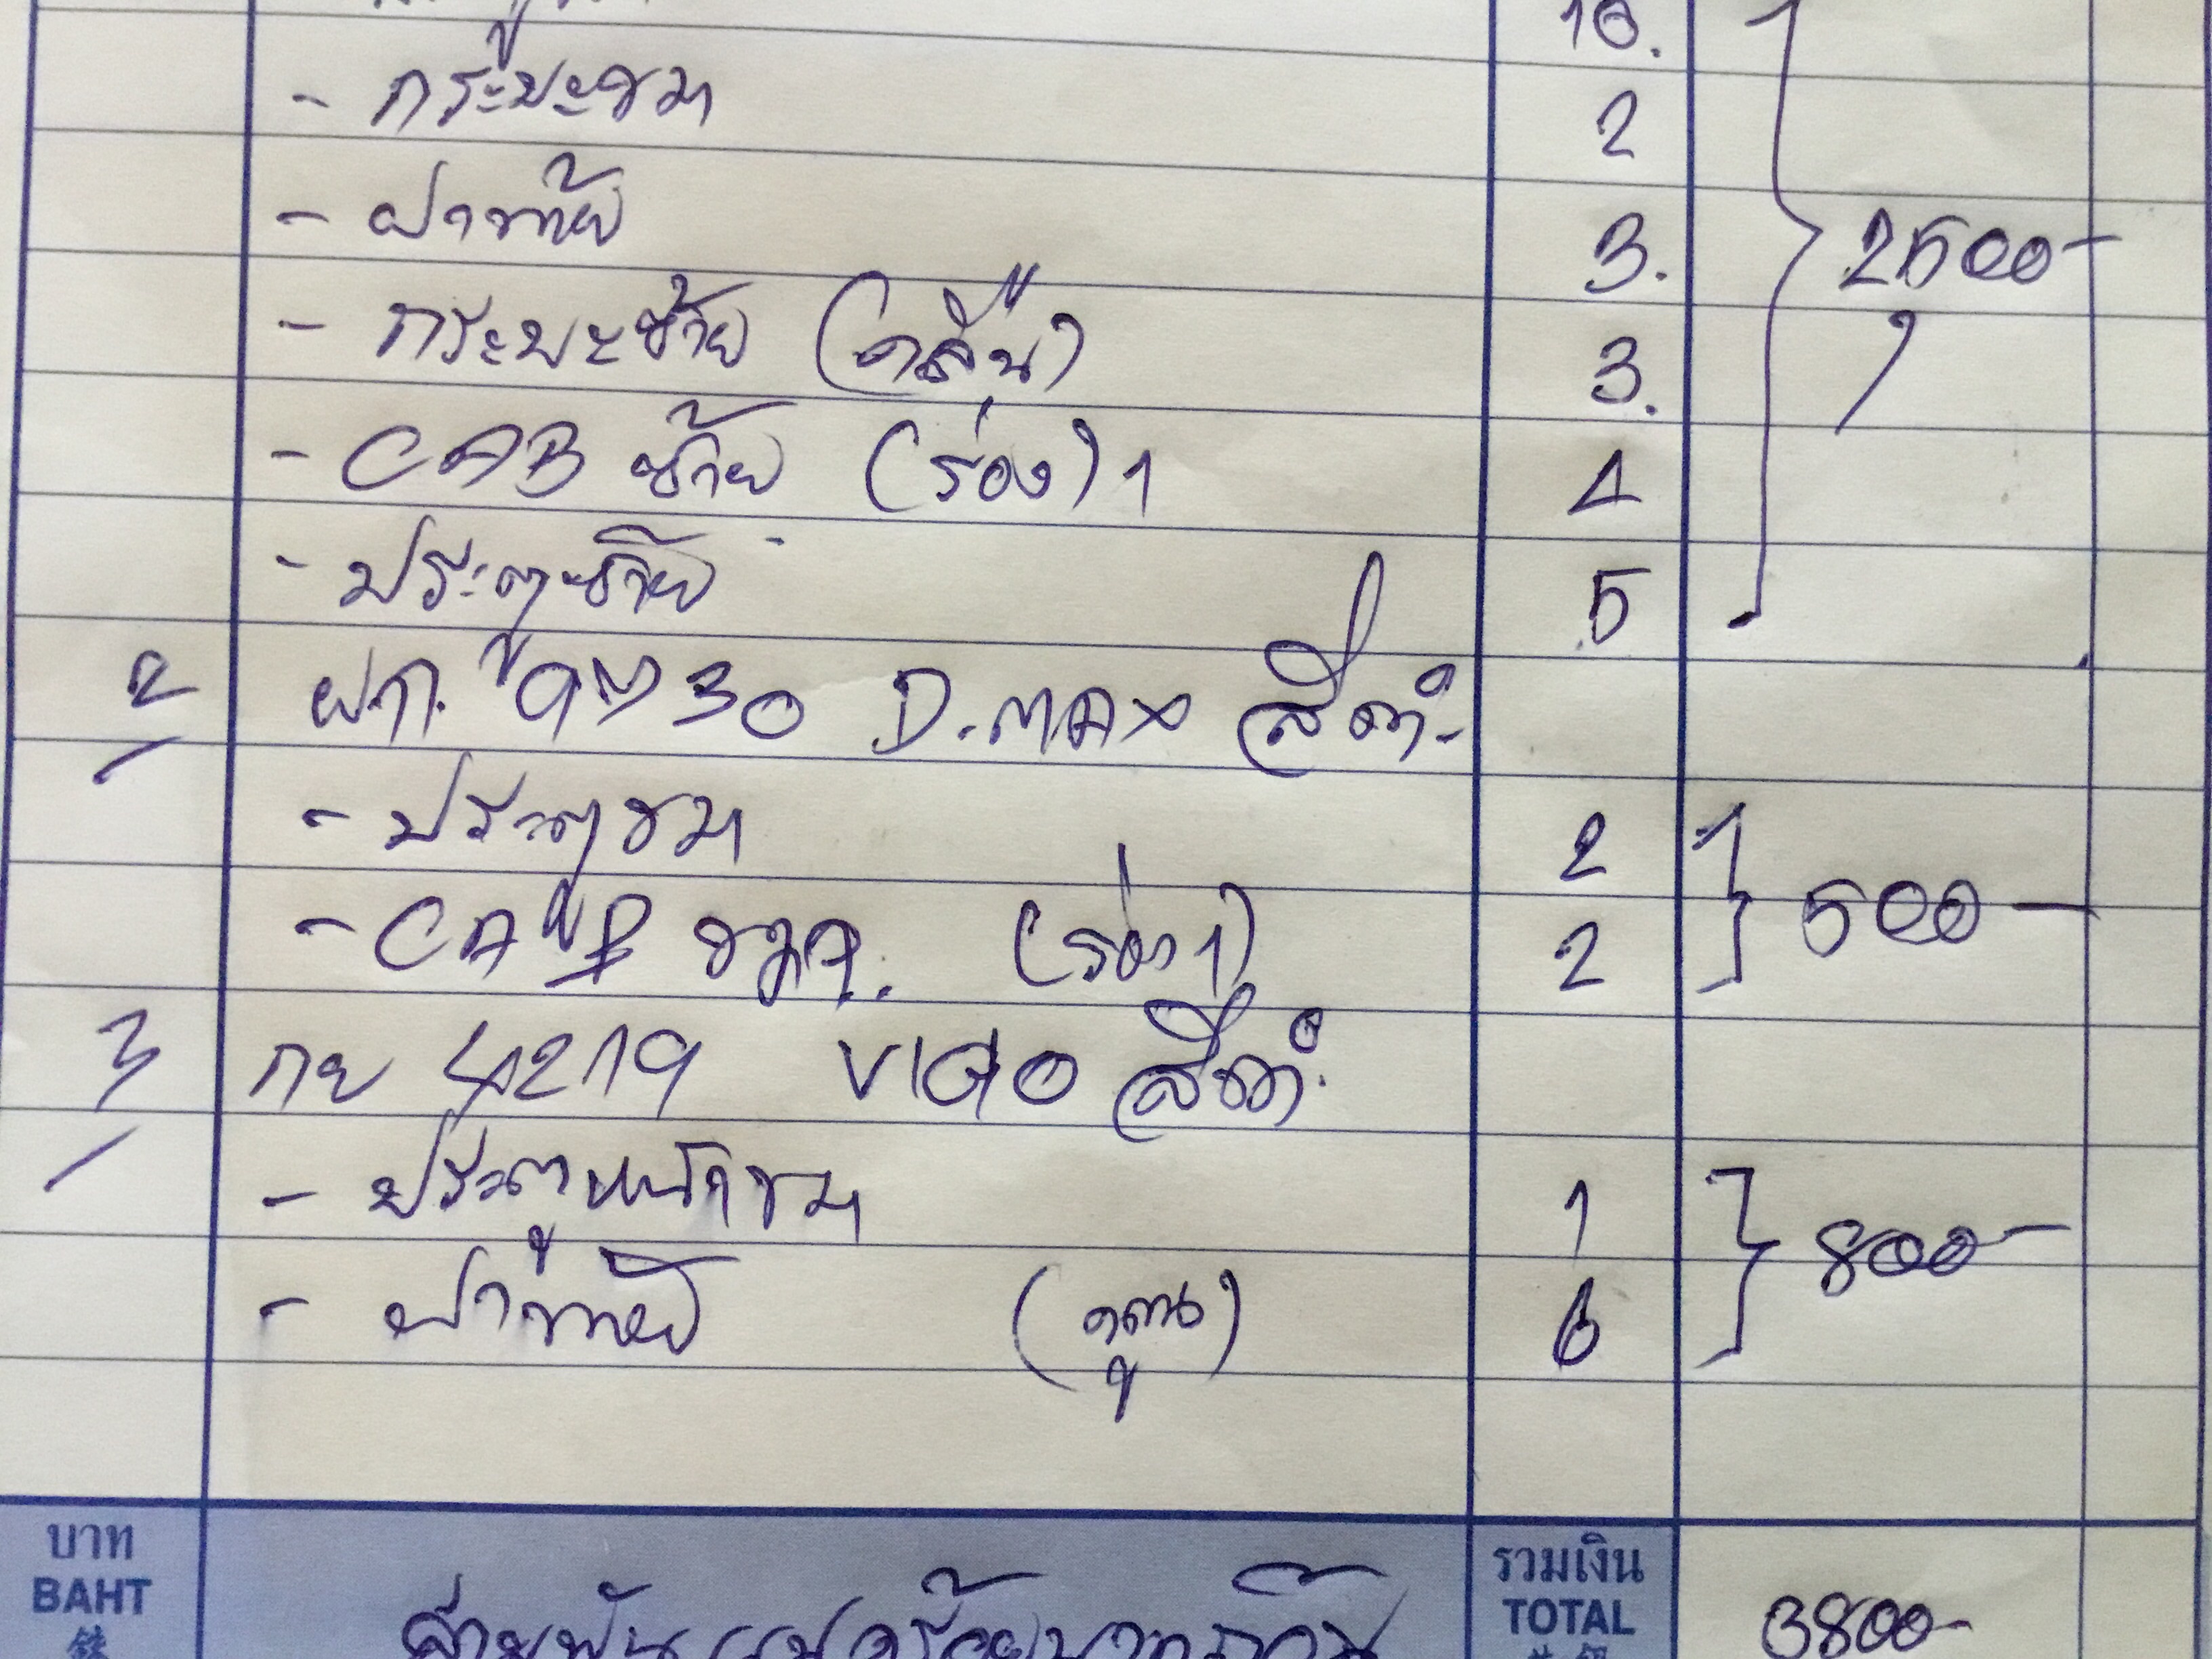 10.
- กระบะขวา 2
- ฝาท้าย 3. 2500-
- กระบะซ้าย (คลื่น) 3.
- CAB ซ้าย (ร่อง) 1 4
- ประตูซ้าย 5
2 ผก. 9730 D.MAX สีดำ
- ประตูขวา 2
- CAB ขวา. (ร่อง 1) 2 500-
3 กย 4219 VIGO สีดำ
- ประตูหน้าขวา 1
- ฝาท้าย (นูน) 6 800-
บาท
BAHT
สามพันแปดร้อยบาทถ้วน
รวมเงิน
TOTAL
3800-